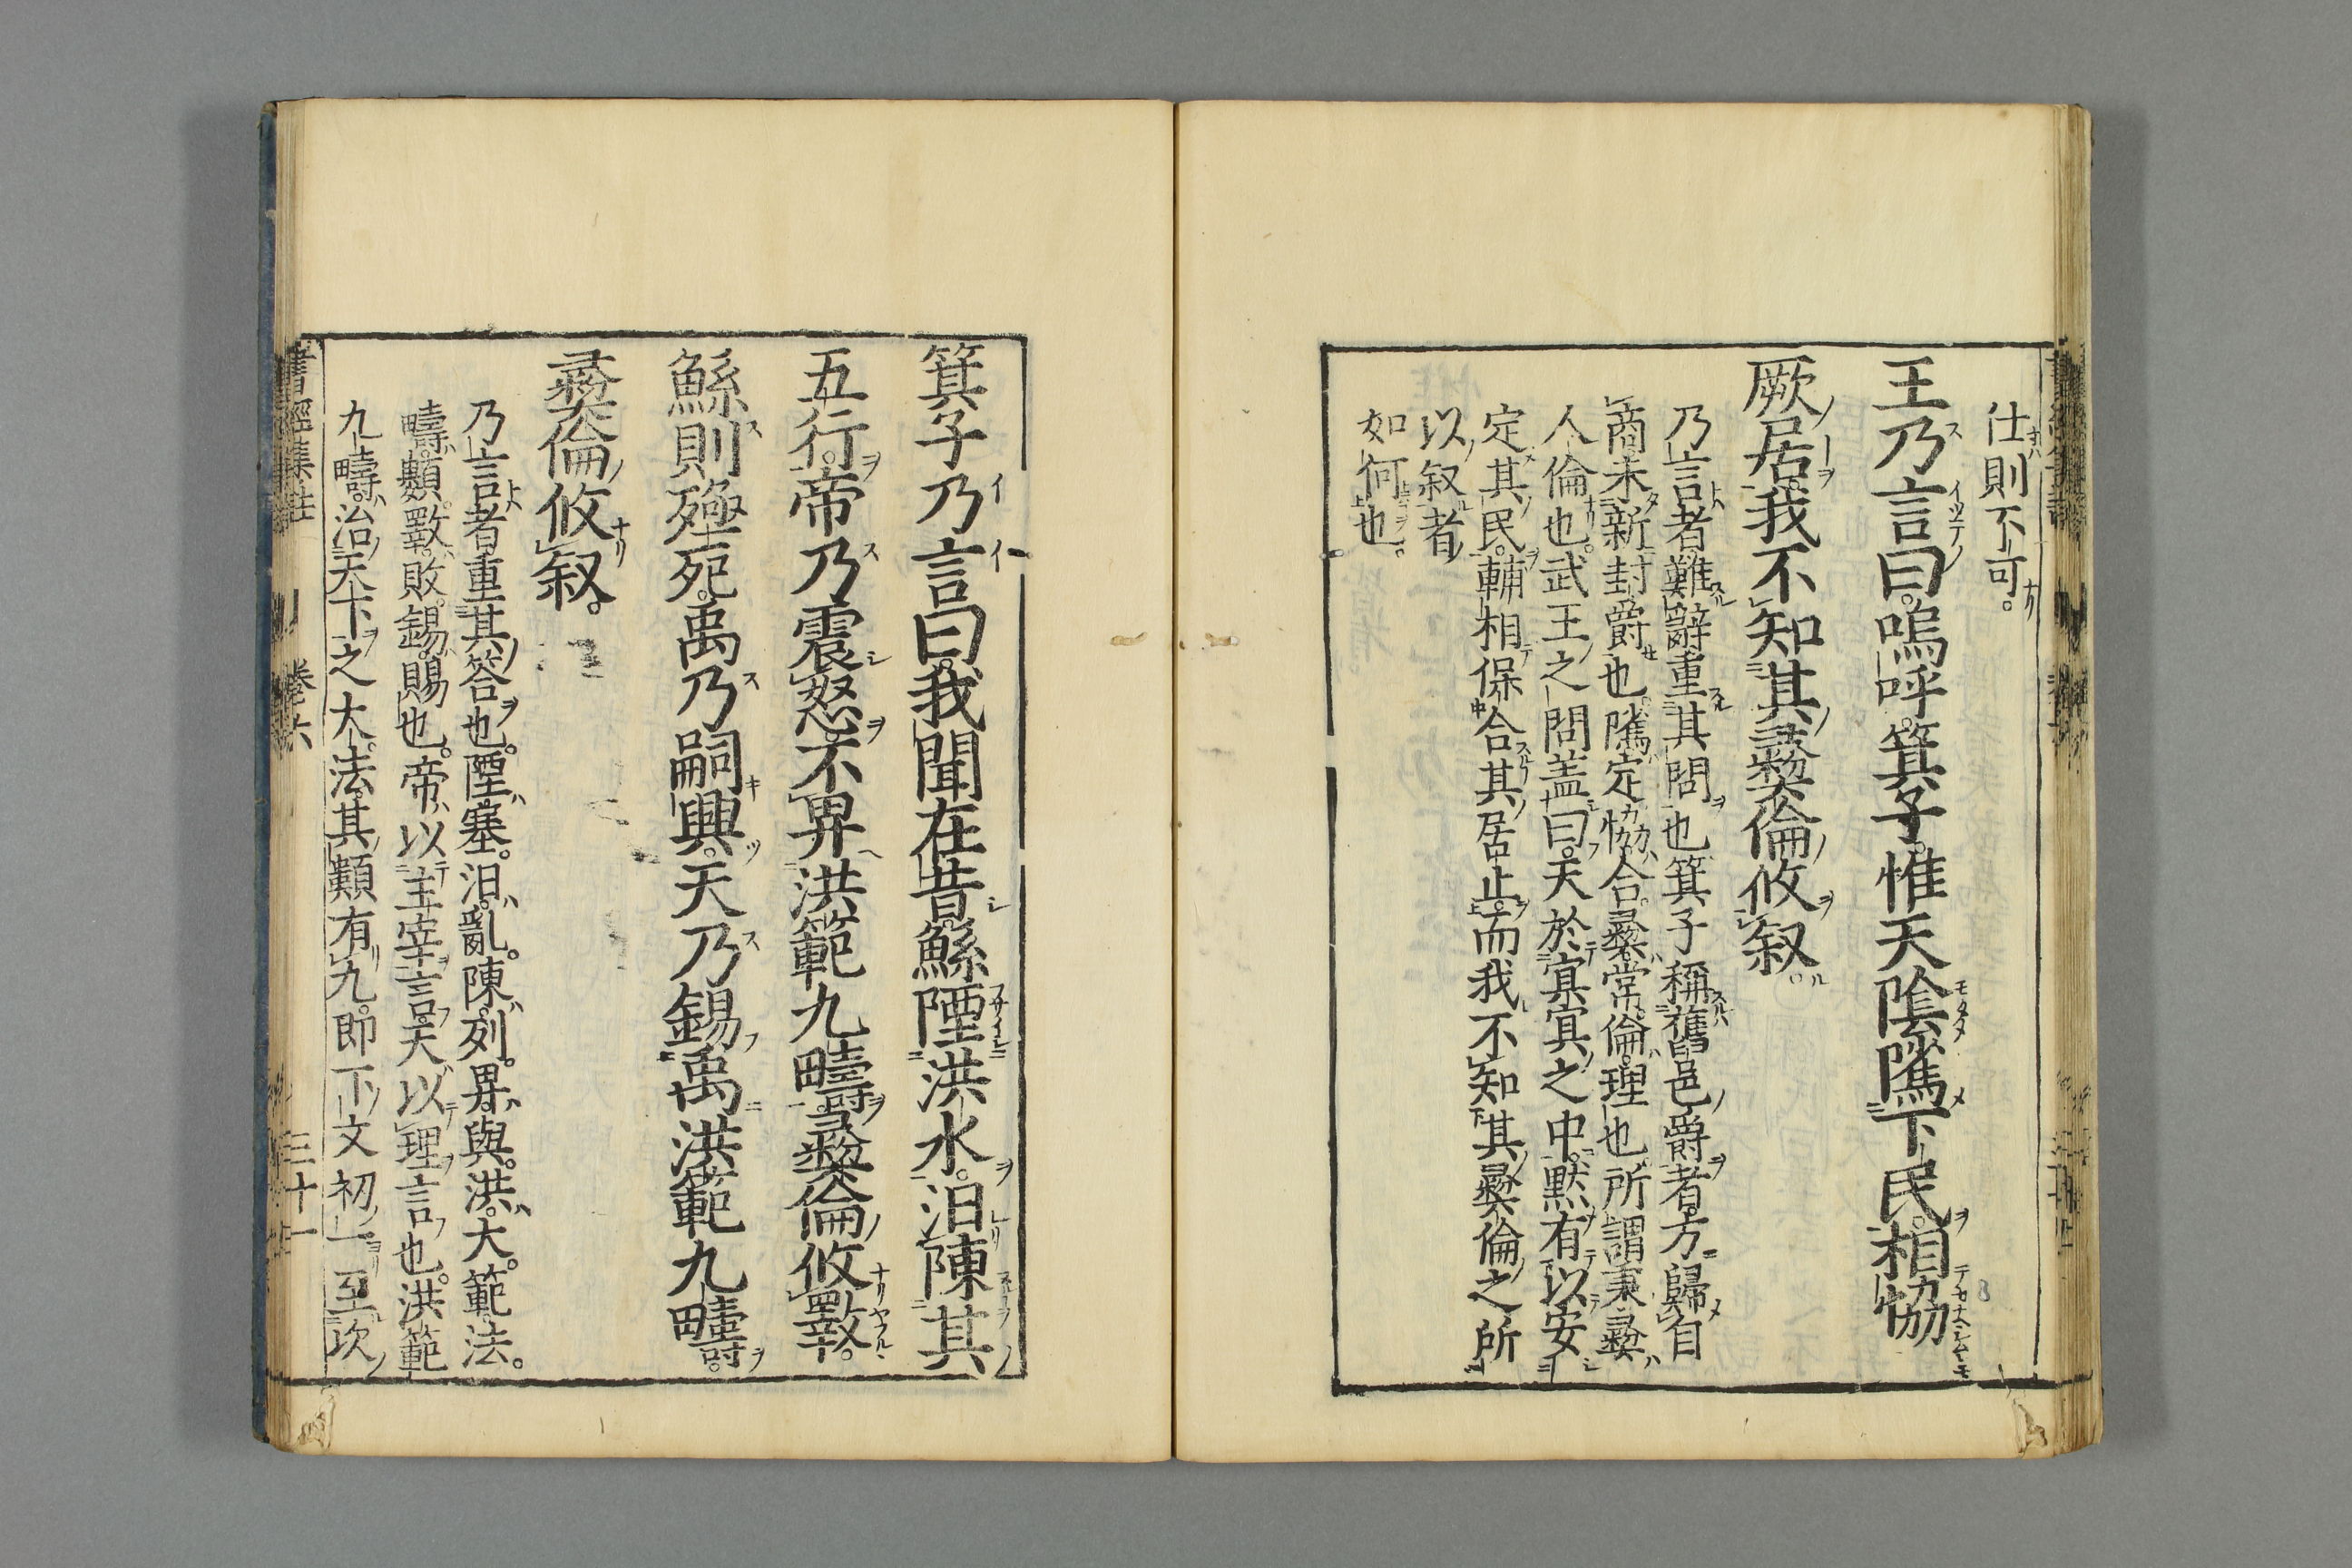 仕則不可。
王乃言曰。嗚呼。箕子。惟天陰隲下民。相恊
厥居。我不知其彝倫攸叙。
乃言者。難辭重其問也。箕子稱舊邑爵者。方歸自
商。未新封爵也。隲。定。恊。合。彝。常。倫。理也。所謂秉彝
人倫也。武王之問。盖曰。天於冥冥之中。默有以安
定其民。輔相保合其居止。而我不知其彝倫之所
以叙者
如何也。
箕子乃言曰。我聞在昔。鯀陻洪水。汨陳其
五行。帝乃震怒。不畀洪範九疇。彝倫攸斁。
鯀則殛死。禹乃嗣興。天乃錫禹洪範九疇。
彝倫攸叙。
乃言者。重其答也。陻。塞。汨。亂。陳。列。畀。與。洪。大。範。法。
疇。類。斁。敗。錫。賜也。帝。以主宰言。天。以理言也。洪範
九疇。治天下之大法。其類有九。即下文初一至次
書經集註 卷六 三十一